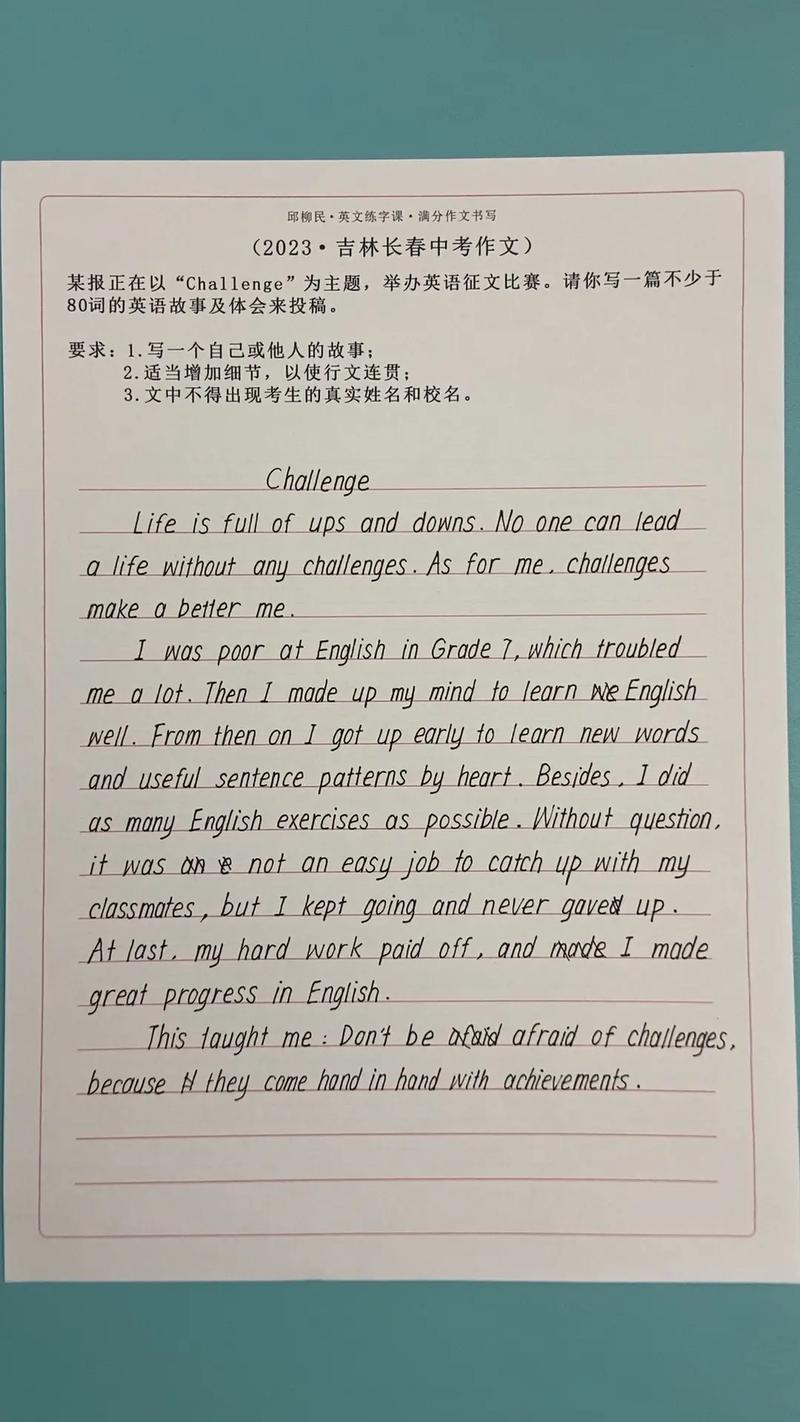 邱柳民·英文练字课·满分作文书写
（2023·吉林长春中考作文）
某报正在以“Challenge”为主题，举办英语征文比赛。请你写一篇不少于
80词的英语故事及体会来投稿。
要求：1.写一个自己或他人的故事；
2.适当增加细节，以使行文连贯；
3.文中不得出现考生的真实姓名和校名。
Challenge
Life is full of ups and downs. No one can lead
a life without any challenges. As for me, challenges
make a better me.
I was poor at English in Grade 7, which troubled
me a lot. Then I made up my mind to learn English
well. From then on I got up early to learn new words
and useful sentence patterns by heart. Besides, I did
as many English exercises as possible. Without question,
it was not an easy job to catch up with my
classmates, but I kept going and never gave up.
At last, my hard work paid off, and I made
great progress in English.
This taught me: Don't be afraid of challenges,
because they come hand in hand with achievements.